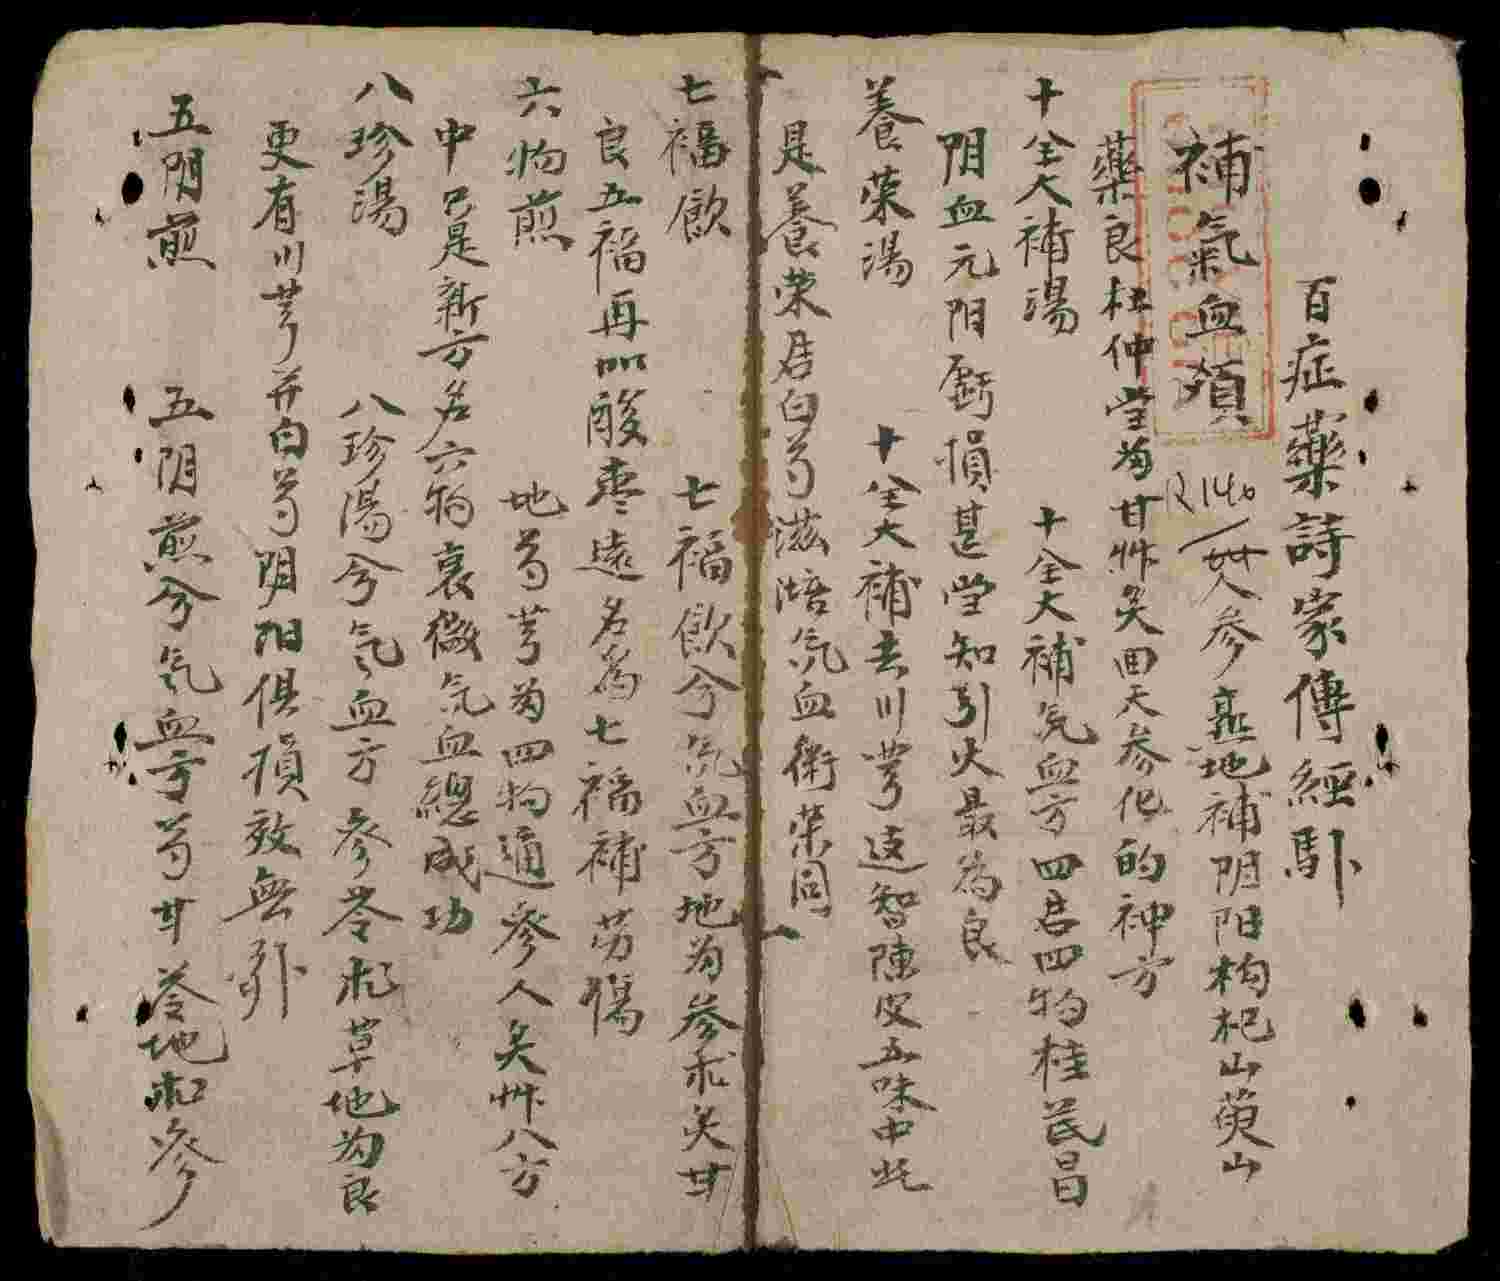 百症藥詩家傳經馭
補氣血類
R.140
人參熟地補阴阳枸杞山萸山
藥良杜仲當為甘艸炙回天參化的神方
十全大補湯　十全大補気血方四君四物桂芪昌
阴血元阳虧損甚堂知引火最為良
養荣湯　十全大補去川芎远智陳皮五味中此
是養荣君白芍滋焙気血衛荣同
七福飲　七福飲兮気血方地為參朮炙甘
良五福再加酸枣遠名為七福補劳傷
六物煎　地芎芎为四物通參人炙艸八方
中已是新方名六物衰微気血總成功
八珍湯　八珍湯兮気血方參苓朮草地為良
更有川芎并白芍阴阳俱損效無
五阴煎　五阴煎兮気血方芍甘苓地朮參